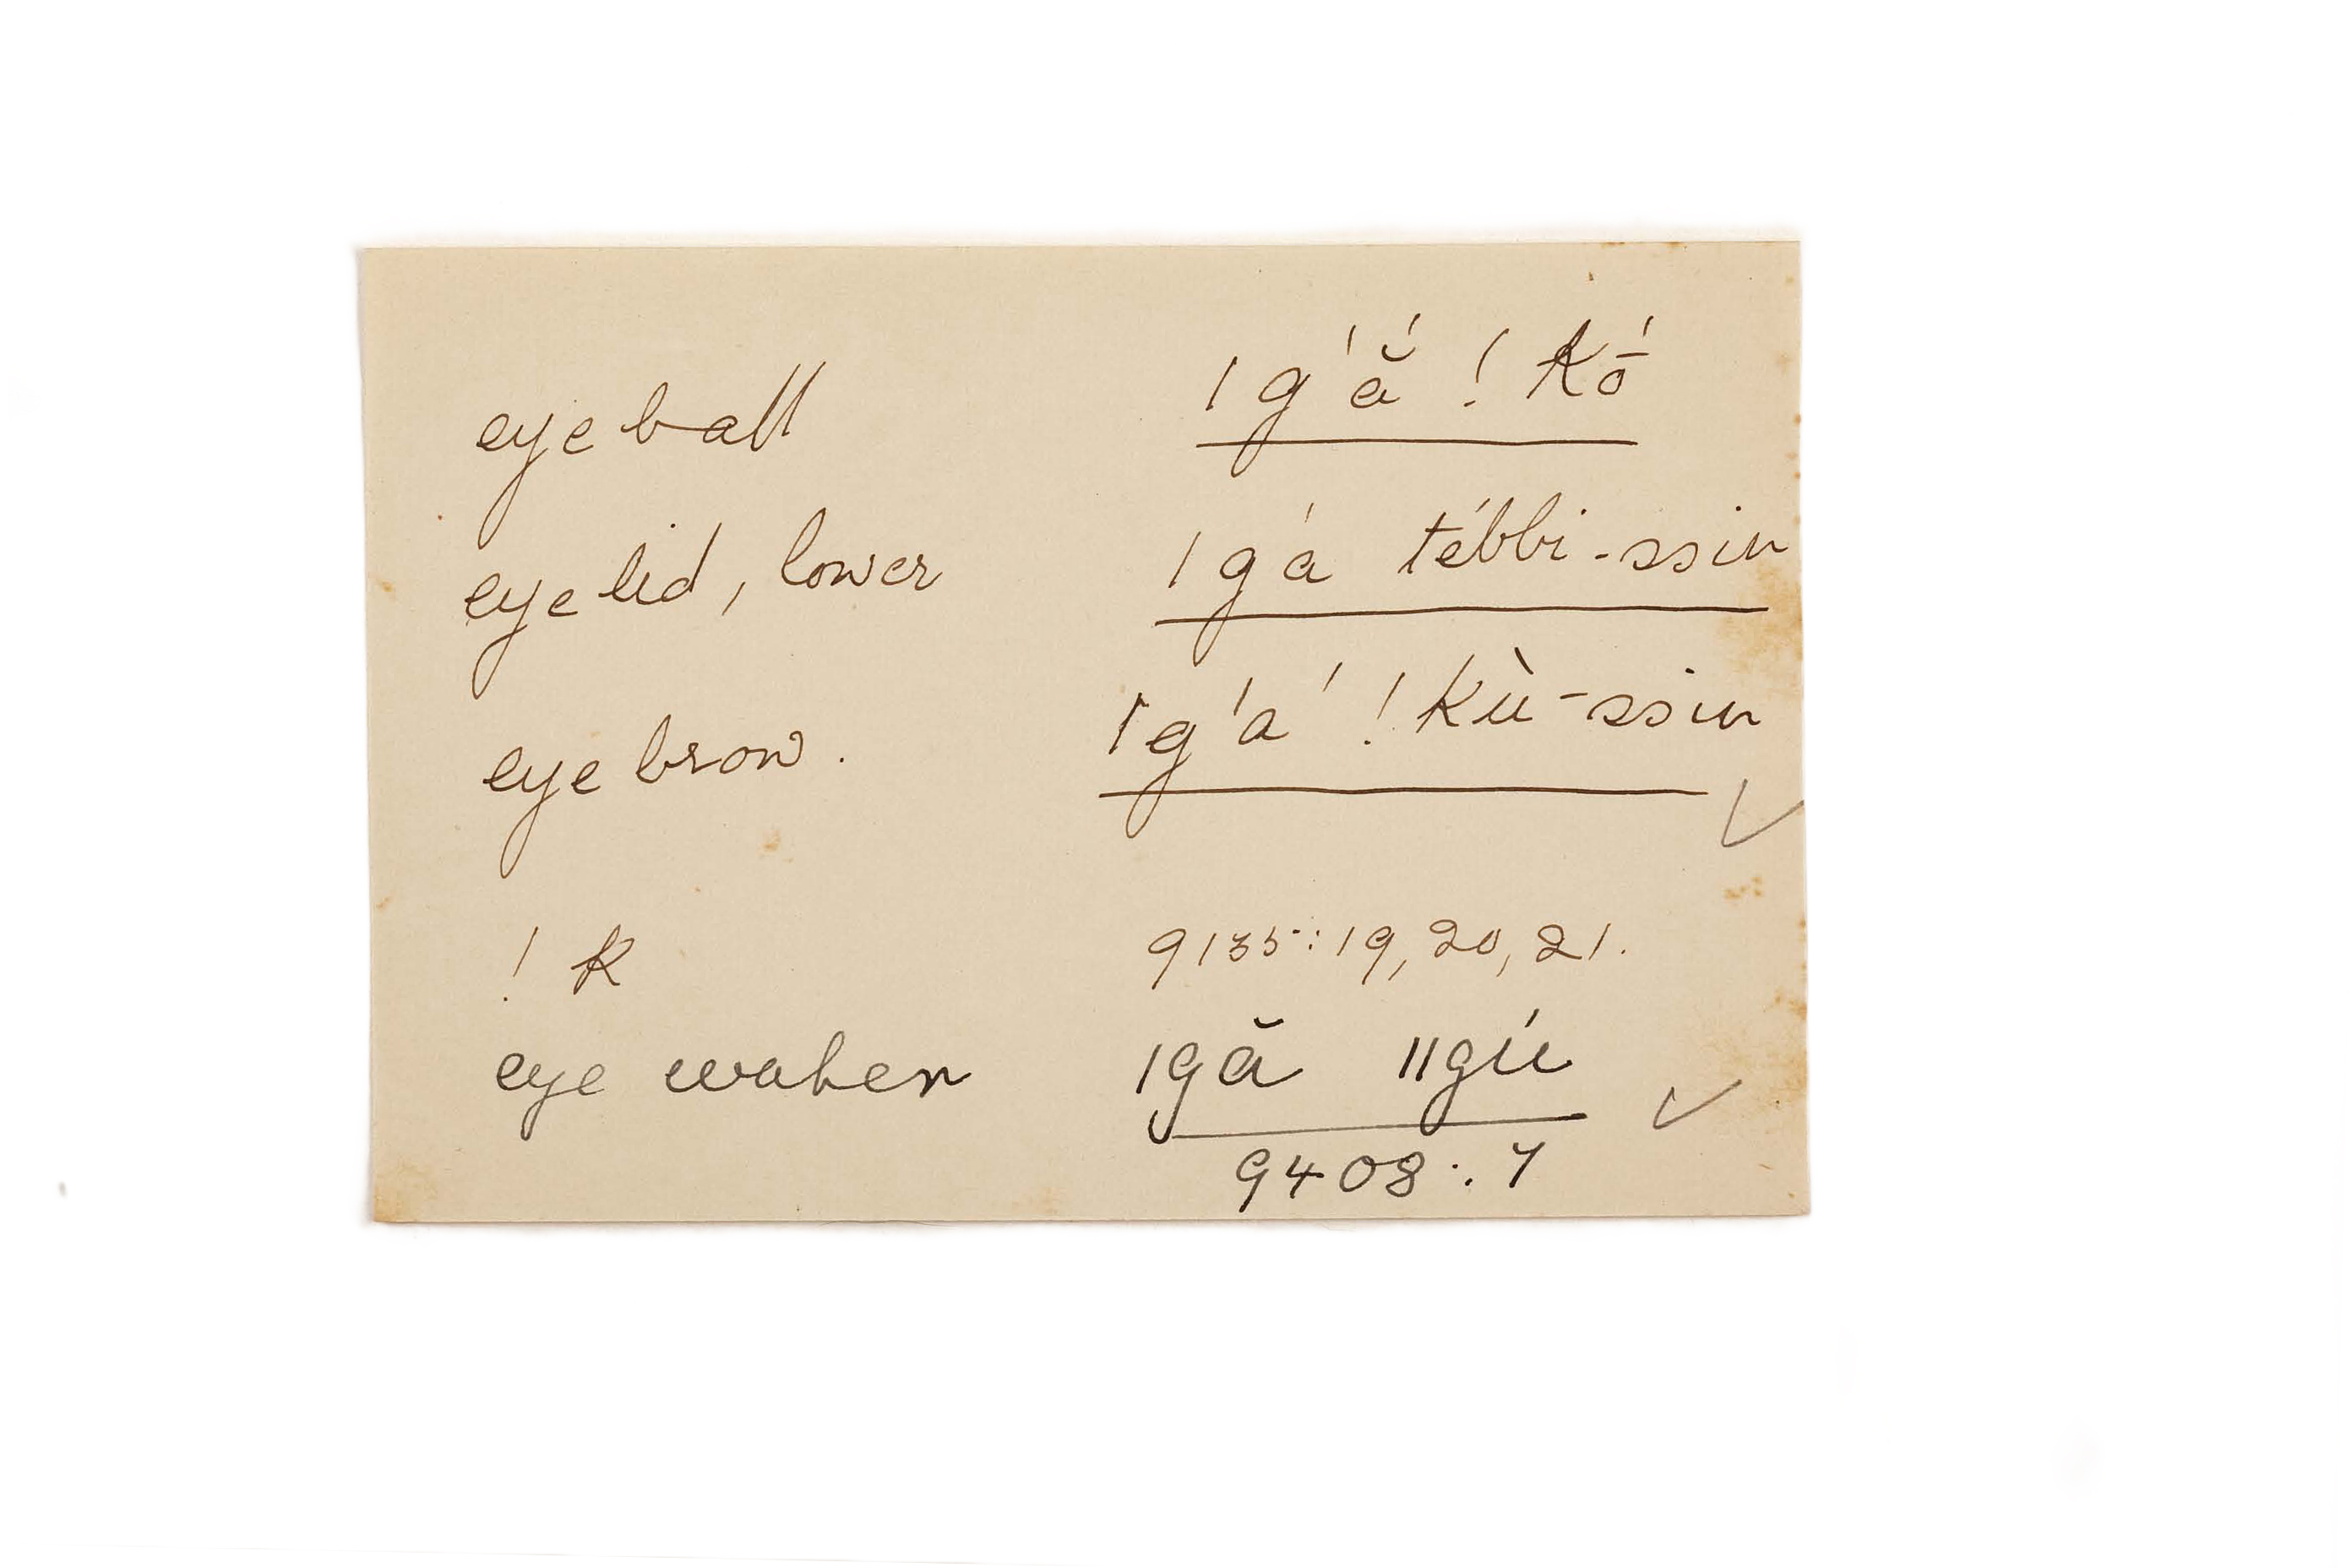 eyeball ǀg'ắ !kṓ
eyelid, lower ǀgá tébbi-ssin
eyebrow. ǀg'á !kù-ssin ✓
!k 9135:19, 20, 21.
eye water ǀgă ǁgú ✓
9408:7